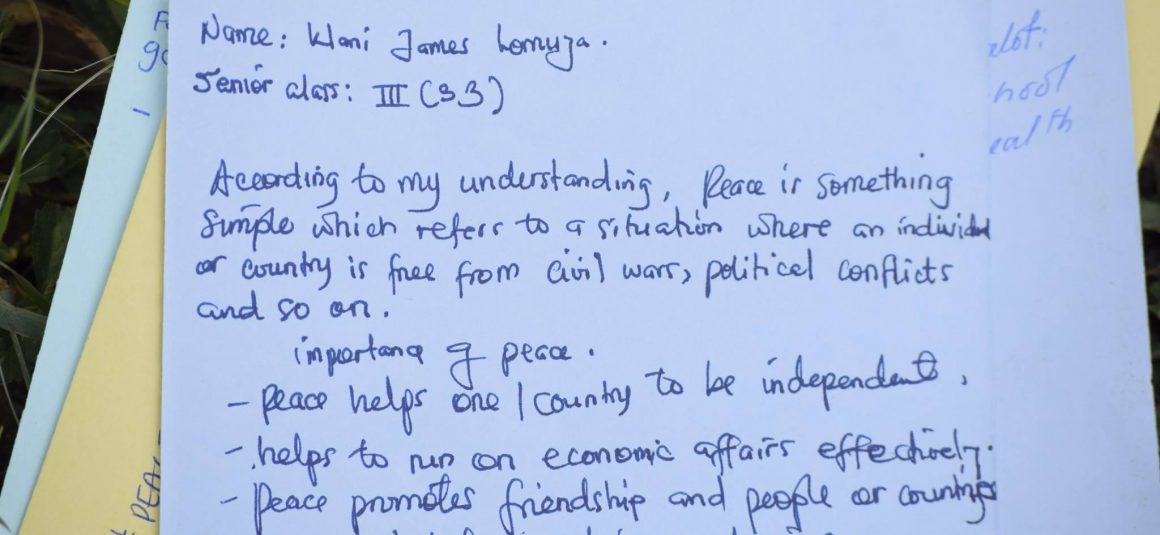 Name: Klani James Lomuja.
Senior class: III (S3)
According to my understanding, Peace is something
simple which refers to a situation where an individual
or country is free from civil wars, political conflicts
and so on.
importance of peace.
- peace helps one / country to be independent,
- helps to run on economic affairs effectively.
- peace promotes friendship and people or countries
alot:
hool
ealth